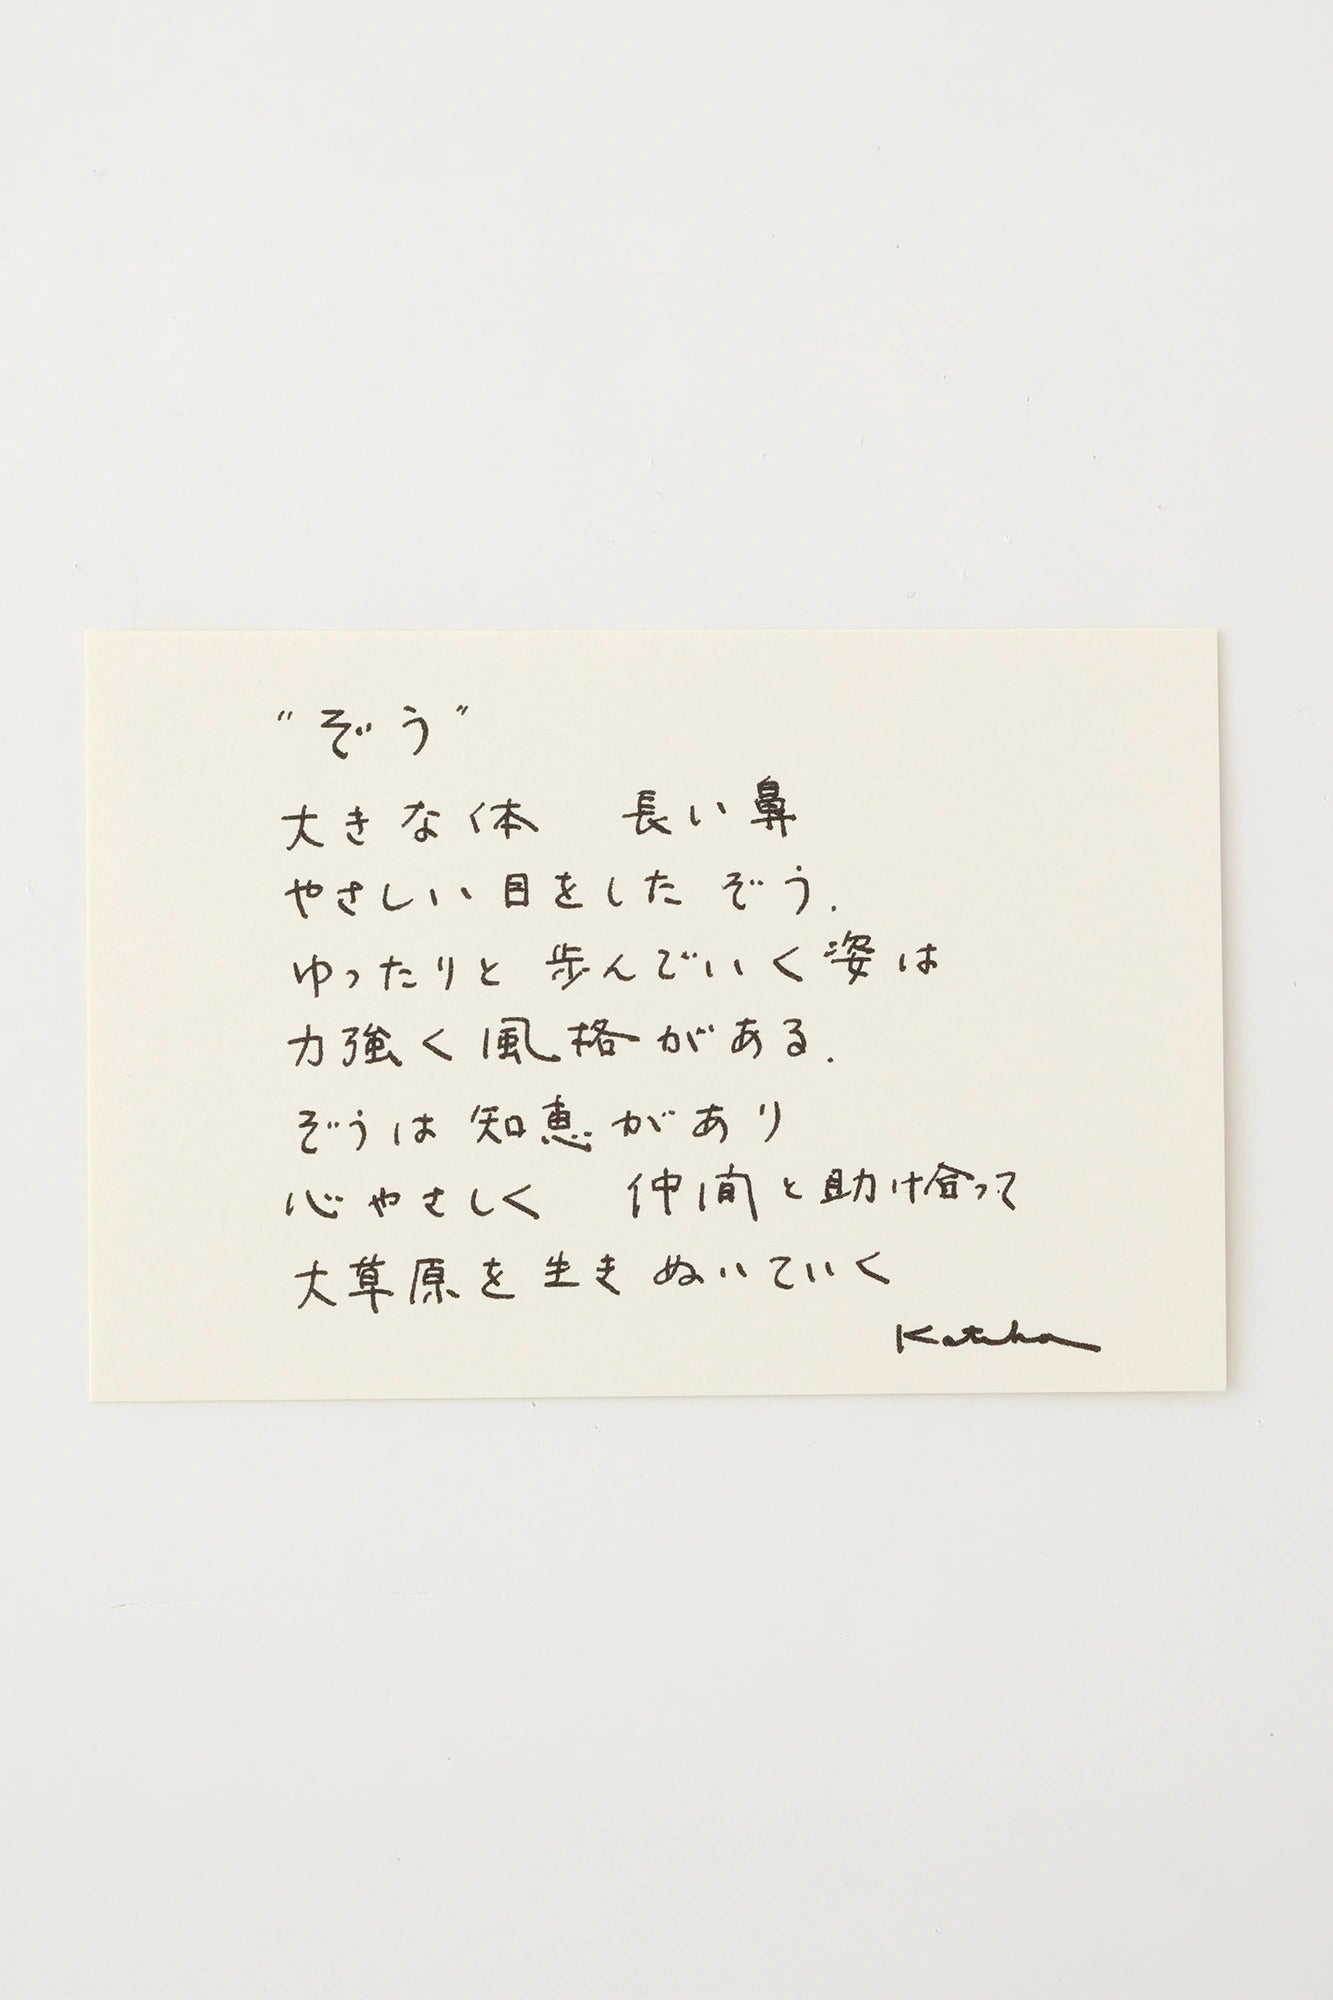 "ぞう"
大きな体　長い鼻
やさしい目をした ぞう.
ゆったりと 歩んでいく姿は
力強く風格がある.
ぞうは 知恵があり
心やさしく　仲間と助け合って
大草原を生きぬいていく